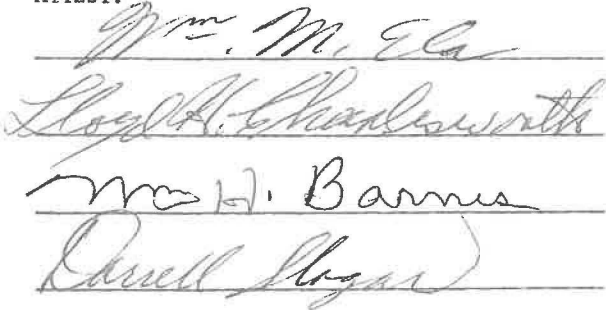 ATTEST:
Wm. M. Ela
Lloyd H. Charlesworth
Wm H. Barnes
Darrell Slogar